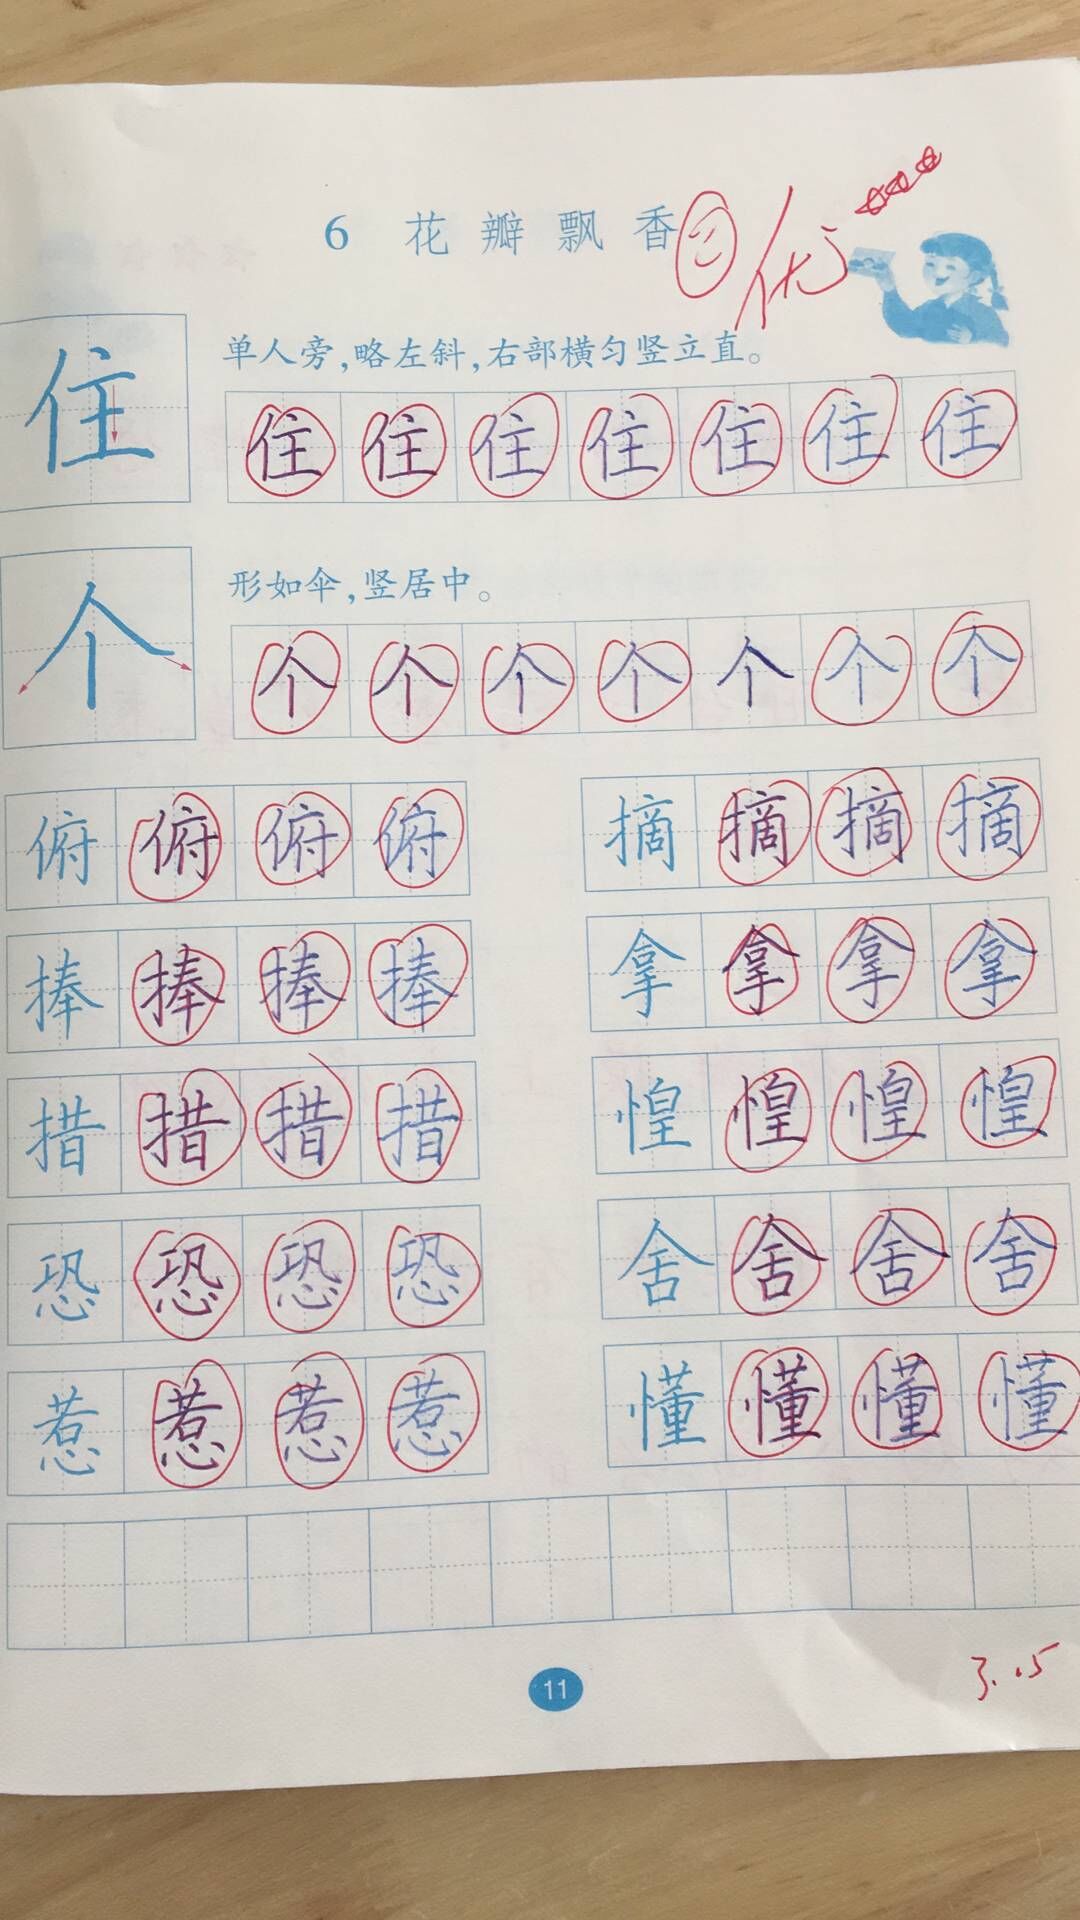 6 花瓣飘香
优
住
单人旁,略左斜,右部横匀竖立直。
住 住 住 住 住 住 住
个
形如伞,竖居中。
个 个 个 个 个 个 个
俯 俯 俯 俯 摘 摘 摘 摘
捧 捧 捧 捧 拿 拿 拿 拿
措 措 措 措 惶 惶 惶 惶
恐 恐 恐 恐 舍 舍 舍 舍
惹 惹 惹 惹 懂 懂 懂 懂
3.15
11